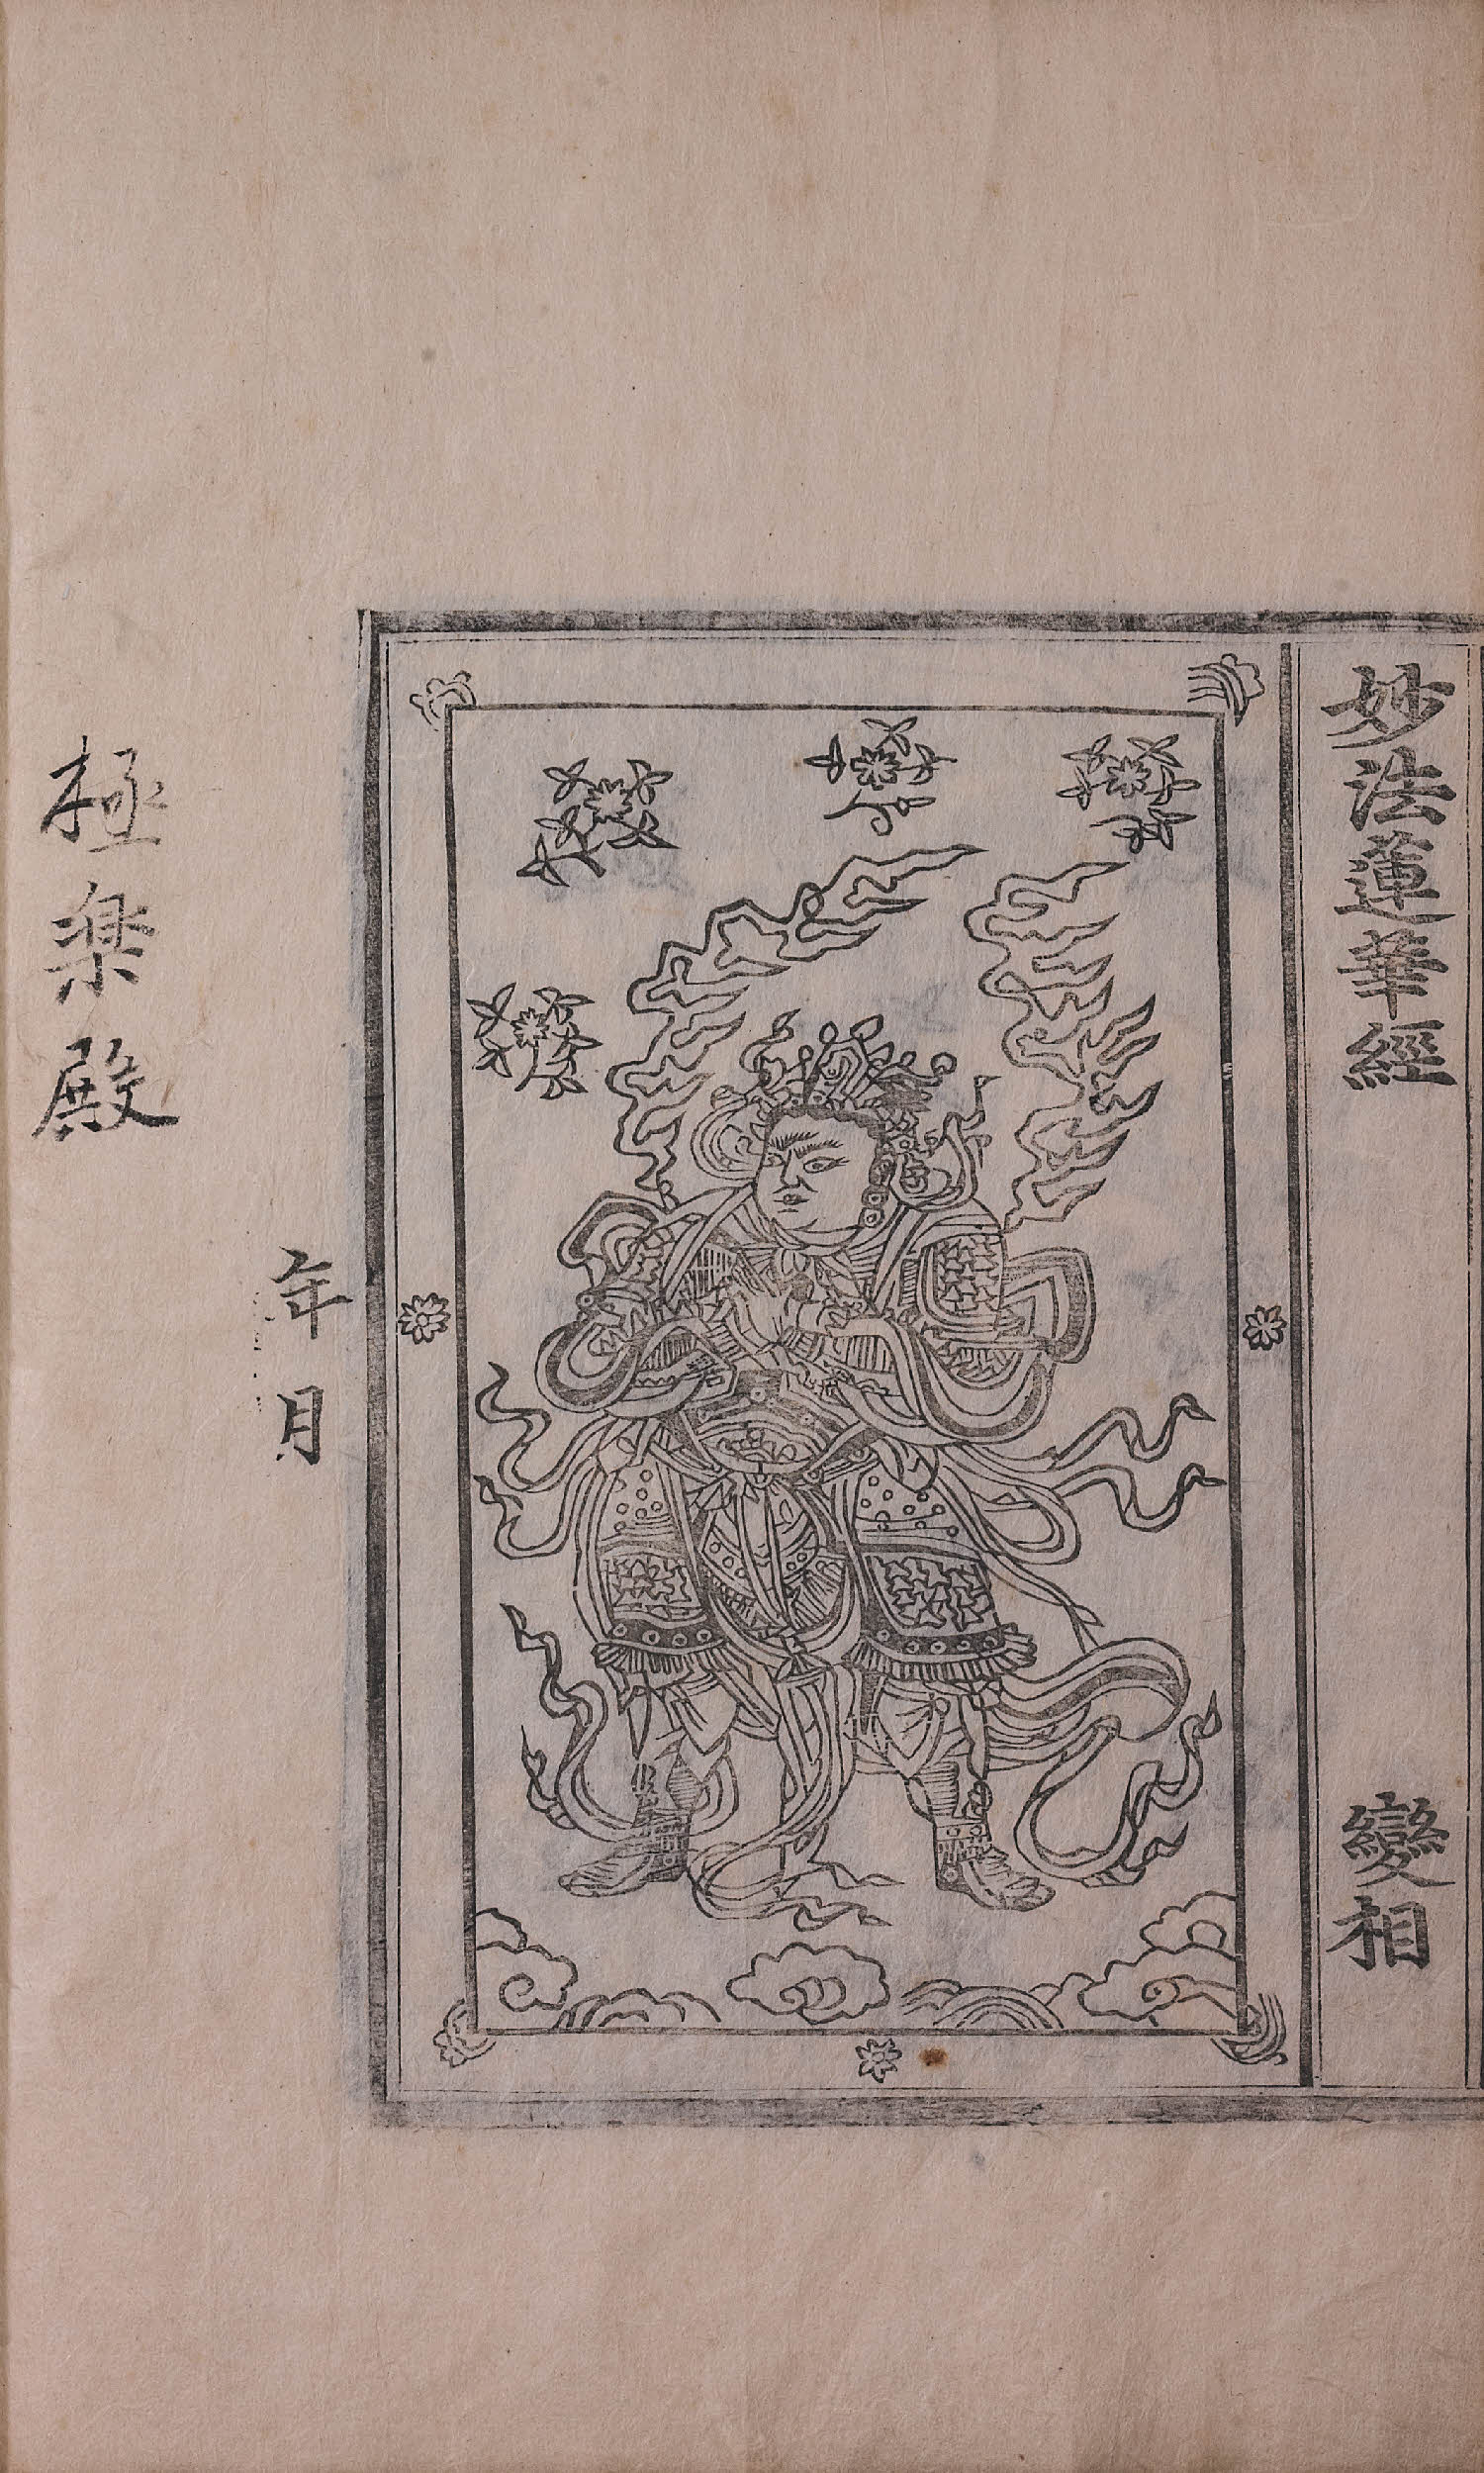 妙法蓮華經 變相
年月
極楽殿